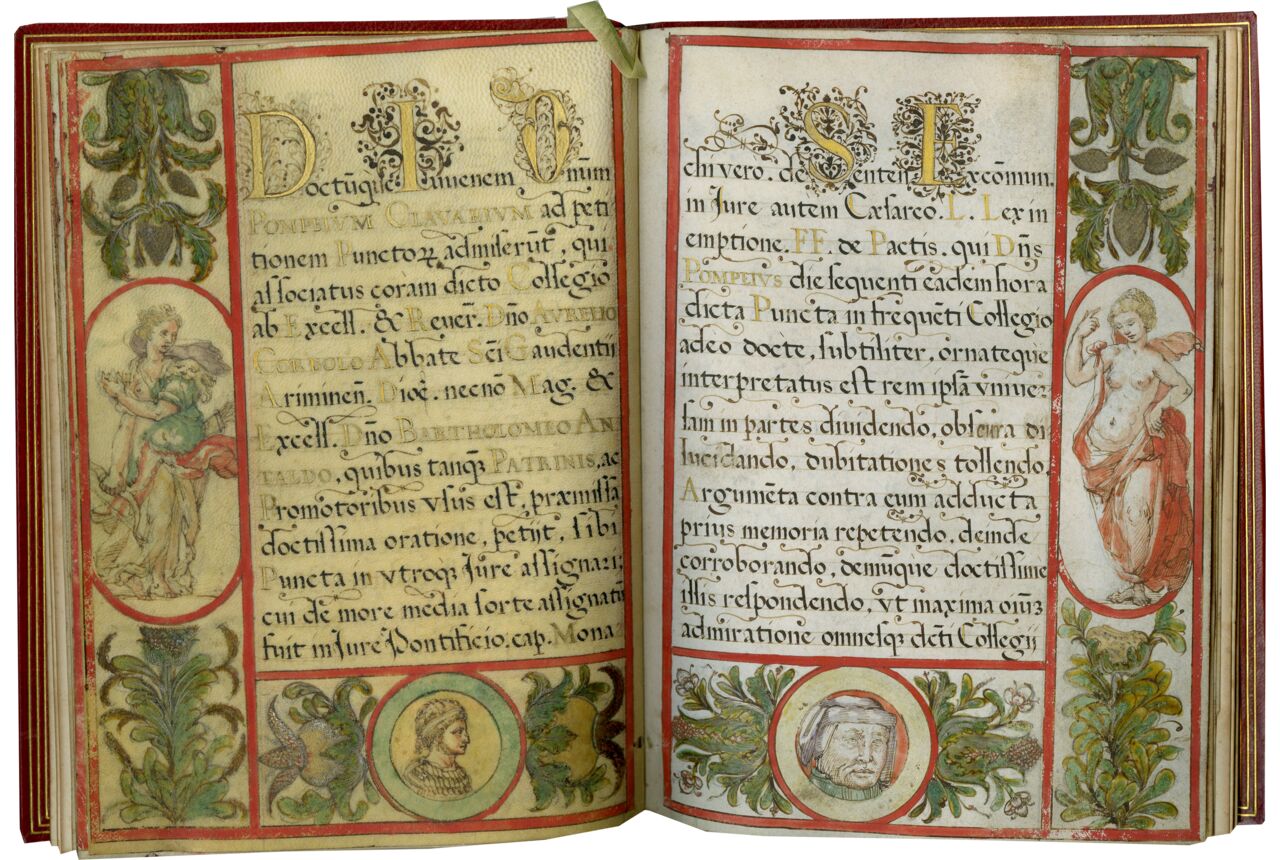 Doctūque Iuuenem Dnum
POMPEIVM CLAVARIVM ad peti
tionem Punctoꝝ admiserūt, qui
associatus coram dicto Collegio
ab Excell. & Reuer. Dño AVRELIO
CORBOLO Abbate Sēi Gaudentii
Ariminen̄. Dioē. necnō Mag. &
Excell. Dño BARTHOLOMEO AN
TALDO, quibus tanqꝫ PATRINIS, ac
Promotoribus vsus est, præmissa
doctissima oratione, petijt, sibi
Puncta in vtroqꝫ Iure assignari;
cui de more media sorte assignatū
fuit in Iure Pontificio. cap. Mona
chi vero. de Senten Excōmun.
in Jure autem Cæsareo. L. Lex in
emptione. FF. de Pactis. qui Dñs
POMPEIVS die sequenti eadem hora
dicta Puncta in frequēti Collegio
adeo docte, subtiliter, ornateque
interpretatus est rem ipsā vniuer
sam in partes diuidendo, obscura di
lucidando, dubitationes tollendo,
Argumēta contra eum adducta
prius memoria repetendo, deinde
corroborando, demūque doctissime
illis respondendo, vt maxima oiūꝫ
admiratione omnesqꝫ dc̄ti Collegij